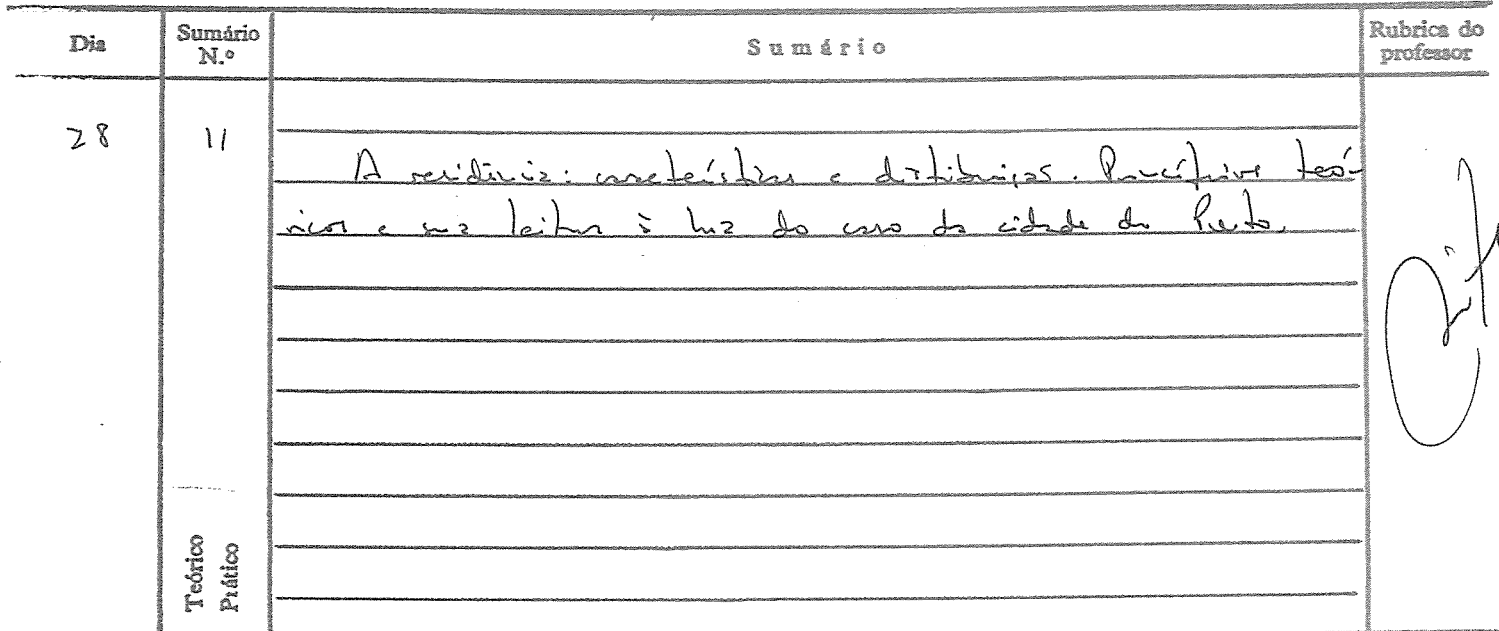 Dia
Sumário
N.º
Sumário
Rubrica do
professor
28
11
A residência: características e distribuição. Princípios teó-
ricos e sua leitura à luz do caso da cidade do Porto.
Teórico
Prático